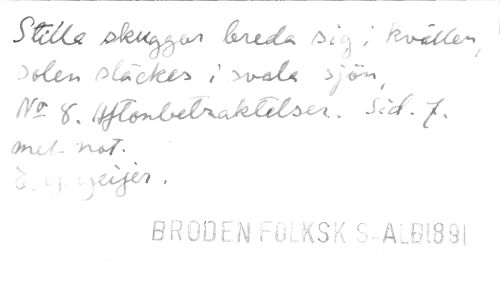 Stilla skuggor breda sig i kvällen,
solen släckes i svala sjön,
No 8. Aftonbetraktelser. Sid. 7.
mel. not.
E. G. Geijer.
BRODEN FOLKSK S-ALB 1891